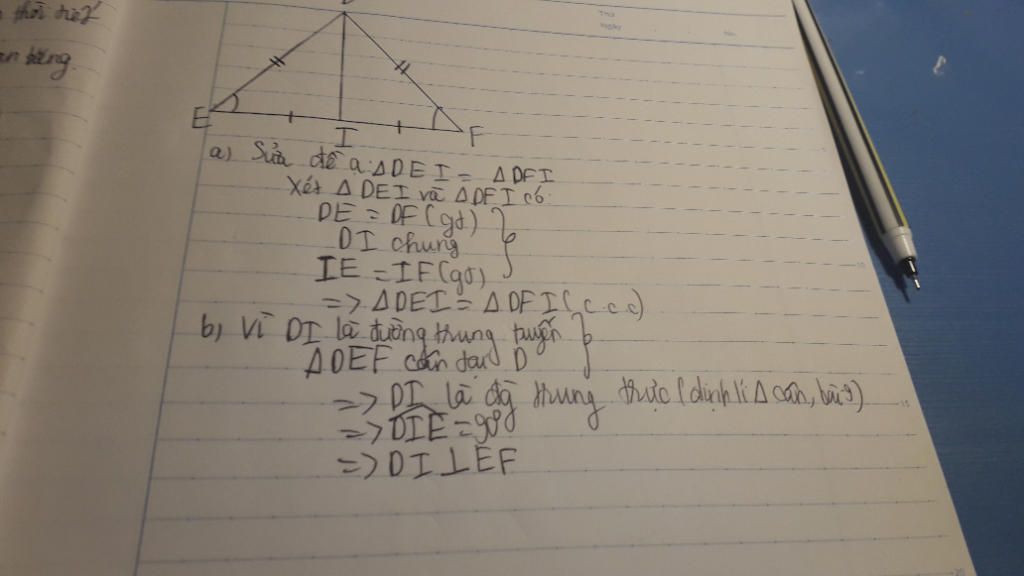 thời
ăn bằng.
Thứ
Ngày
No.
E
I
F
a) Sửa đề a: ΔDEI = ΔDFI
Xét ΔDEI và ΔDFI có:
DE = DF (gt)
DI chung
IE = IF (gt)
=> ΔDEI = ΔDFI (c.c.c)
b) Vì DI là đường trung tuyến
ΔDEF cân tại D
=> DI là đg trung trực (định lí Δ cân, bài 9)
=> DIE = 90°
=> DI ⊥ EF